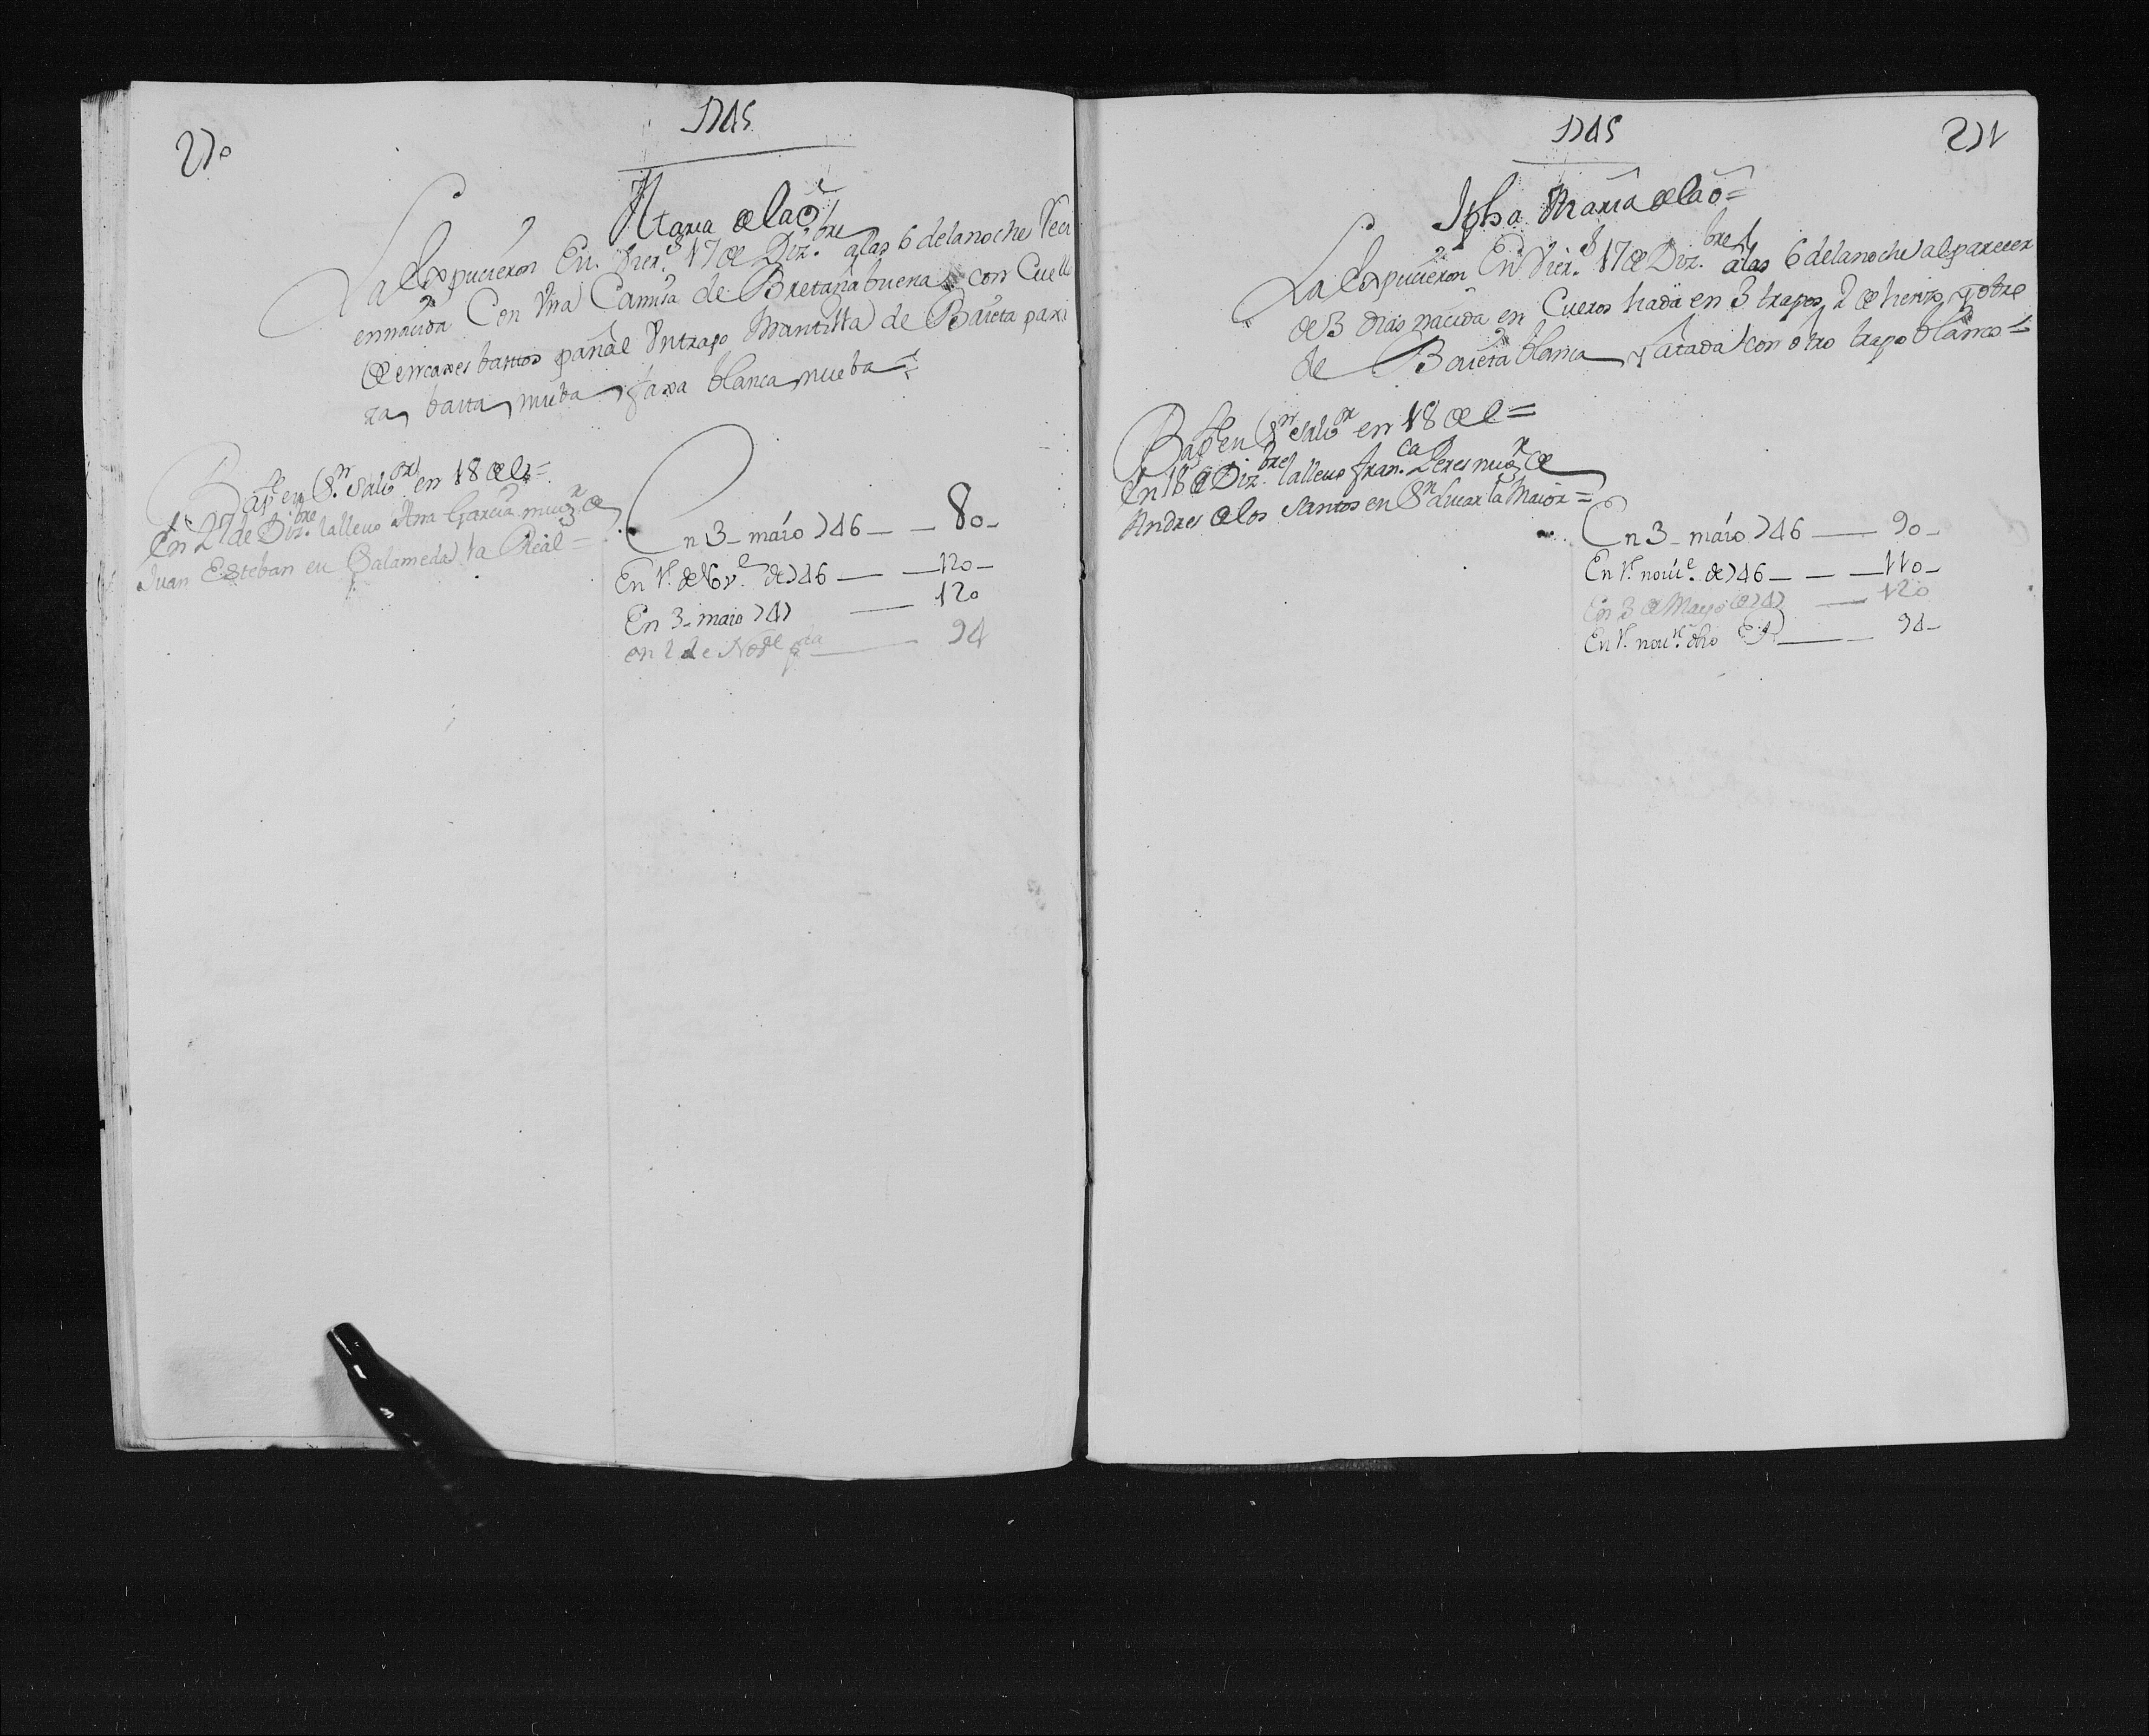 270
1745
Maria de la O
La Expucieron En Vier.s 17 de Diz.bre a las 6 de la noche Reci
ennacida Con Vna Camisa de Bretaña buena con Cuell
de encaxes bastos pañal Vn trapo Mantilla de Baieta pari
ra basta nueba faxa blanca nueba =
Bap.se en S.n Salb.or en 18 de el =
En 21 de Diz.bre la lleuo Ana Garcia mug.r de
Juan Esteban en Salamedas la Real =
En 3 - maio 746 — — 80 -
En 1.º de Nov.e de 746 — — 120 -
En 3 - maio 747 — 120
en 2 de Nov.e — 94
271
1745
Jpha Maria de la O =
La Expucieron En Vier.s 17 de Diz.bre a las 6 de la noche al parecer
de 3 dias nacida en Cueros liada en 3 trapos 2 de lienzo y otro
de Baieta blanca y atada con otro trapo blanco =
Bap.se en S.n Salb.or en 18 de el =
En 18 de Diz.bre la lleuo Fran.ca Peres mug.r de
Andres de los Santos en S.n Lucar la Maior =
En 3 - maio 746 — 90 -
En 1.º nouie de 746 — — — 110 -
En 3 de Mayo de 747 — 120
En 1.º nou.e dho — 94 -